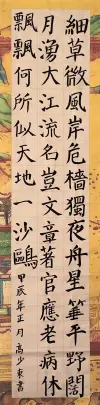 細草微風岸危檣獨夜舟星垂平野闊
月湧大江流名豈文章著官應老病休
飄飄何所似天地一沙鷗 甲辰年正月 高少東書